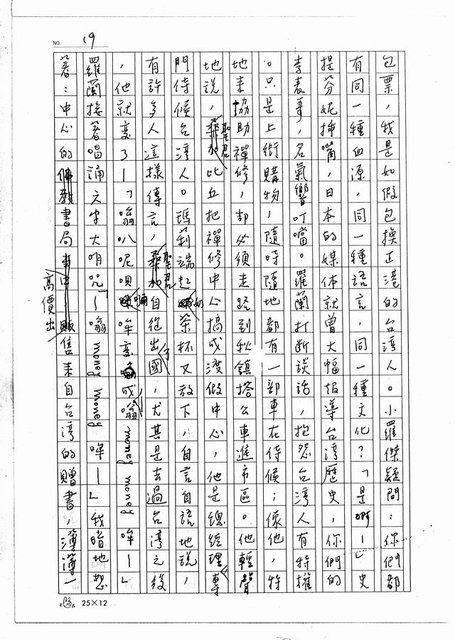 NO. 19
包票，我是如假包換正港的台灣人。小羅傑疑問：你們都
有同一種血源，同一種語言，同一種文化。「是啊！」史
提芬妮插嘴，日本的媒體就曾大幅報導台灣歷史，你們的
李表哥，名氣響叮噹。羅蘭打斷談話，抱怨台灣人有特權
。只是上街購物，隨時隨地都有一部車在侍候；像他，特
地來協助禪修，卻必須走路到秋鎮搭公車進市區。他輕聲
地說，聖君比丘把禪修中心搞成渡假中心，他是總經理，專
門侍候台灣人。瑪莉端起茶杯又放下，自言自語地說，
有許多人這樣傳言，聖君自從出國，尤其是去過台灣之後
，他就變了—「嗡叭呢唄哞」變成「嗡 money money 哞—」
羅蘭接著唱誦六字大明咒—「嗡 money money 哞—」我暗地想
著：中心的書局高價出售來自台灣的贈書，薄薄一
25×12